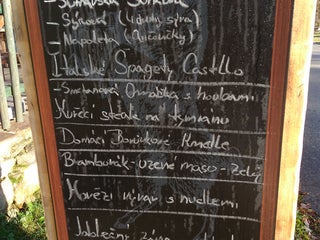 - Šumavská
- Sýrová (4 druhy sýra)
- Napoleta (Ančovičky)
Italské Spagety Castello
- Smetanová Omáčka s houbami
Kuřecí steak na tymianu
Domácí Borůvkové Knedle
Bramborák - uzené maso - zelí
Hovězí vývar s nudlemi
Jablečný